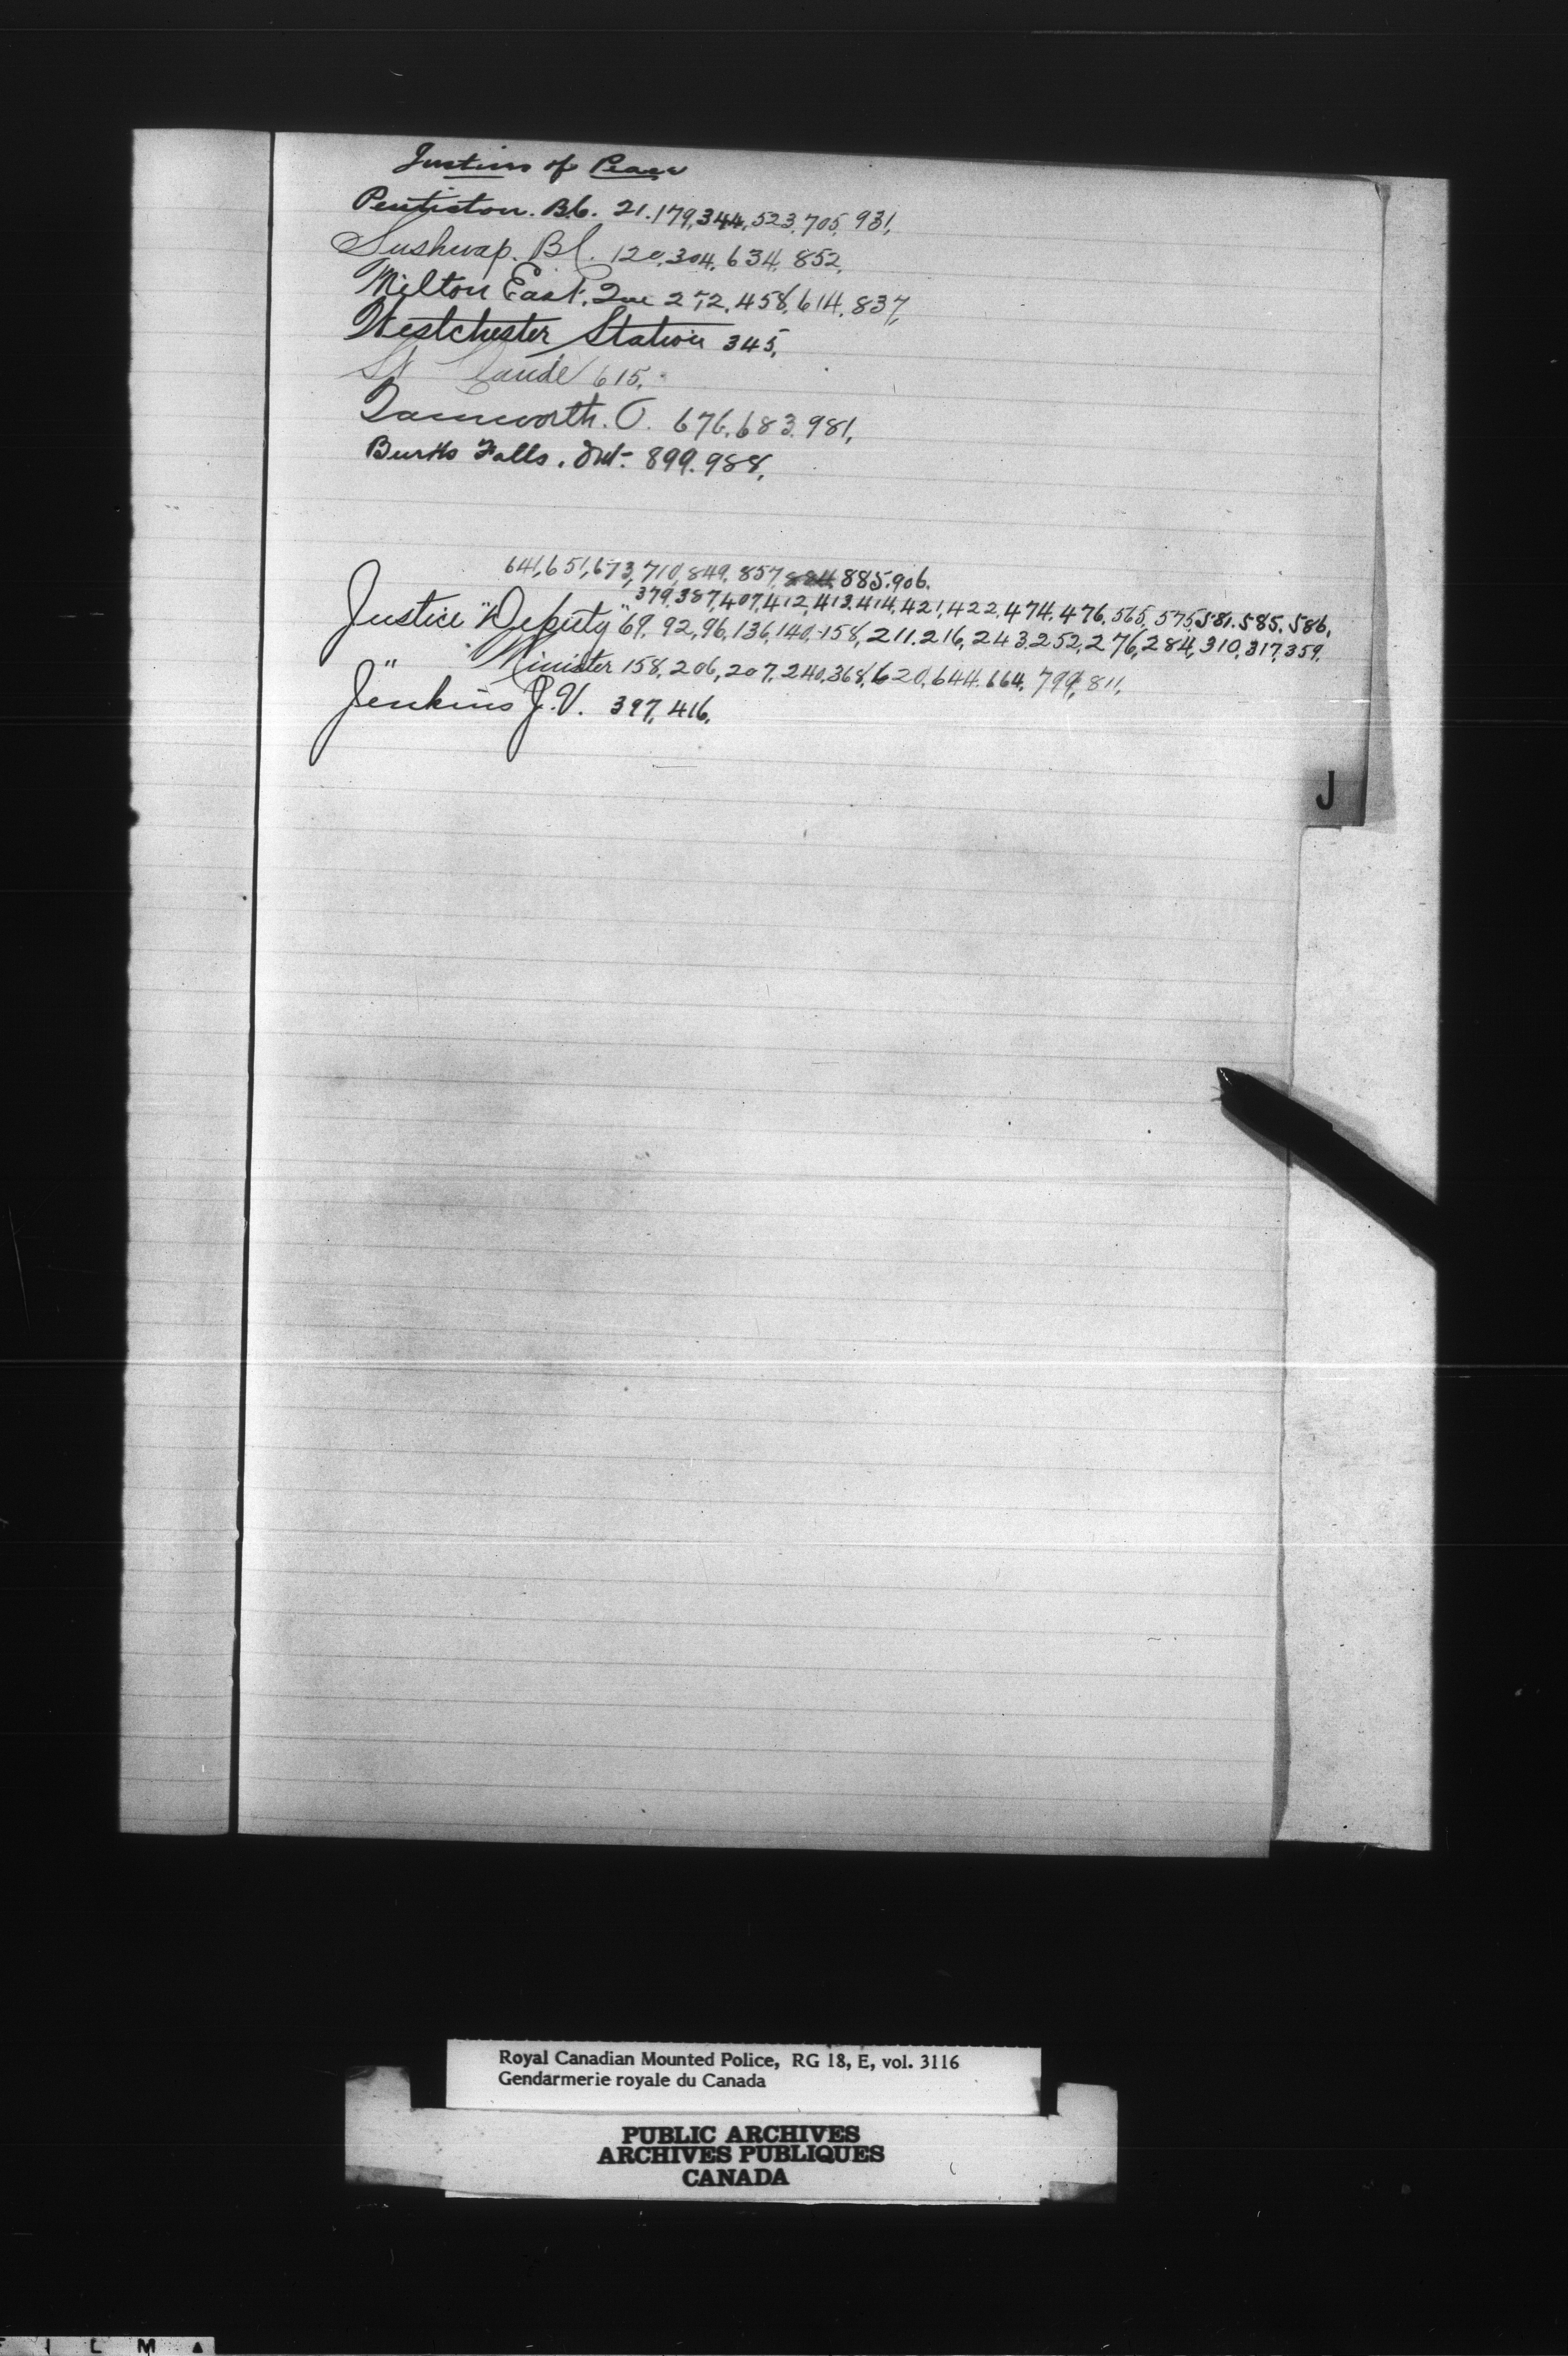 Justices of Peace
Penticton. B.C. 21.179,344,523,705,931,
Sushwap. B.C. 120,304,634,852,
Milton East, Que 272,458,614,837,
Westchester Station 345,
St Claude 615,
Tamworth. O. 676,683,981,
Burks Falls. Ont. 899.988,
641,651,673,710,849,857,884,885,906.
379,387,407,412,413,414,421,422,474,476,565,575,581.585.586,
Justice "Deputy" 69,92,96,136,140,158,211.216,243,252,276,284,310,317,359,
" Minister 158,206,207,240,368,620,644.664,799,811,
Jenkins J.V. 397,416,
J
Royal Canadian Mounted Police, RG 18, E, vol. 3116
Gendarmerie royale du Canada
PUBLIC ARCHIVES
ARCHIVES PUBLIQUES
CANADA
F I L M A